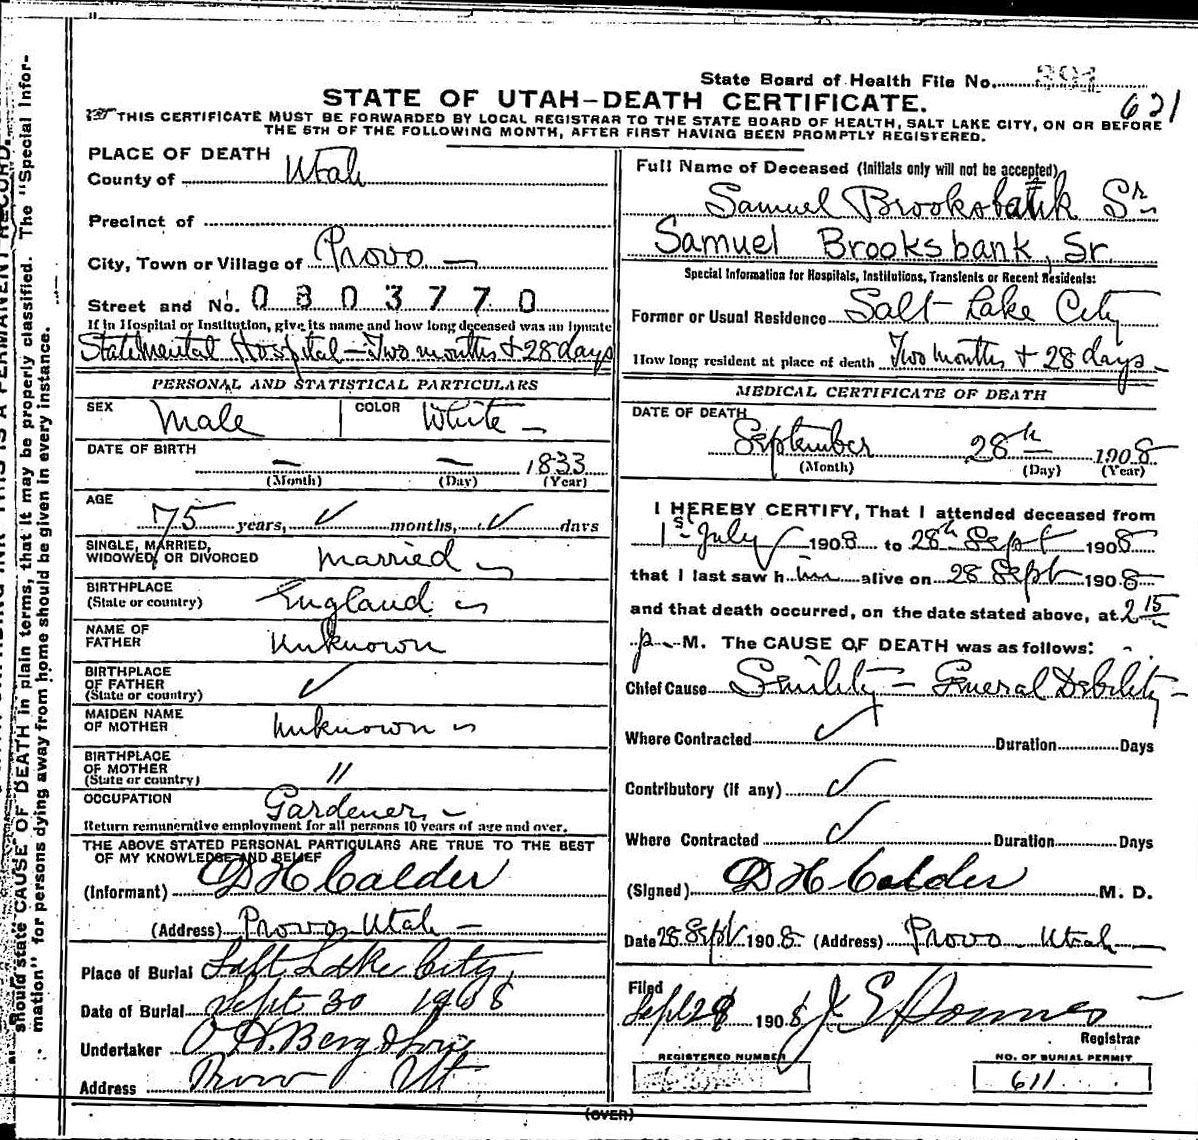 State Board of Health File No.
621
STATE OF UTAH-DEATH CERTIFICATE.
THIS CERTIFICATE MUST BE FORWARDED BY LOCAL REGISTRAR TO THE STATE BOARD OF HEALTH, SALT LAKE CITY, ON OR BEFORE
THE 5TH OF THE FOLLOWING MONTH, AFTER FIRST HAVING BEEN PROMPTLY REGISTERED.
PLACE OF DEATH
County of Utah
Precinct of
City, Town or Village of Provo
Street and No. 0803770
If in Hospital or Institution, give its name and how long deceased was an inmate
State Mental Hospital - Two months & 28 days
PERSONAL AND STATISTICAL PARTICULARS
SEX Male COLOR White
DATE OF BIRTH — — 1833
(Month) (Day) (Year)
AGE
75 years, ✓ months, ✓ days
SINGLE, MARRIED,
WIDOWED, OR DIVORCED Married
BIRTHPLACE
(State or country) England
NAME OF
FATHER Unknown
BIRTHPLACE
OF FATHER
(State or country) ✓
MAIDEN NAME
OF MOTHER Unknown
BIRTHPLACE
OF MOTHER
(State or country) "
OCCUPATION Gardener
Return remunerative employment for all persons 10 years of age and over.
THE ABOVE STATED PERSONAL PARTICULARS ARE TRUE TO THE BEST
OF MY KNOWLEDGE AND BELIEF
(Informant) D H Calder
(Address) Provo Utah
Place of Burial Salt Lake City,
Date of Burial Sept 30 1908
Undertaker O. H. Berg & Son
Address Provo Ut
Full Name of Deceased (Initials only will not be accepted)
Samuel Brooksbank Sr
Samuel Brooksbank, Sr.
Special Information for Hospitals, Institutions, Transients or Recent Residents:
Former or Usual Residence Salt Lake City
How long resident at place of death Two months & 28 days
MEDICAL CERTIFICATE OF DEATH
DATE OF DEATH
September 28th 1908
(Month) (Day) (Year)
I HEREBY CERTIFY, That I attended deceased from
1st July 1908 to 28th Sept 1908
that I last saw him alive on 28 Sept 1908
and that death occurred, on the date stated above, at 2 15
p M. The CAUSE OF DEATH was as follows:
Chief Cause Senility - General Debility
Where Contracted ✓ Duration Days
Contributory (if any) ✓
Where Contracted ✓ Duration Days
(Signed) D H Calder M. D.
Date 28 Sept 1908 (Address) Provo - Utah
Filed
Sept 28 1908
Registrar
REGISTERED NUMBER
NO. OF BURIAL PERMIT
611
(OVER)
should state CAUSE OF DEATH in plain terms, that it may be properly classified. The "Special Infor-
mation" for persons dying away from home should be given in every instance.